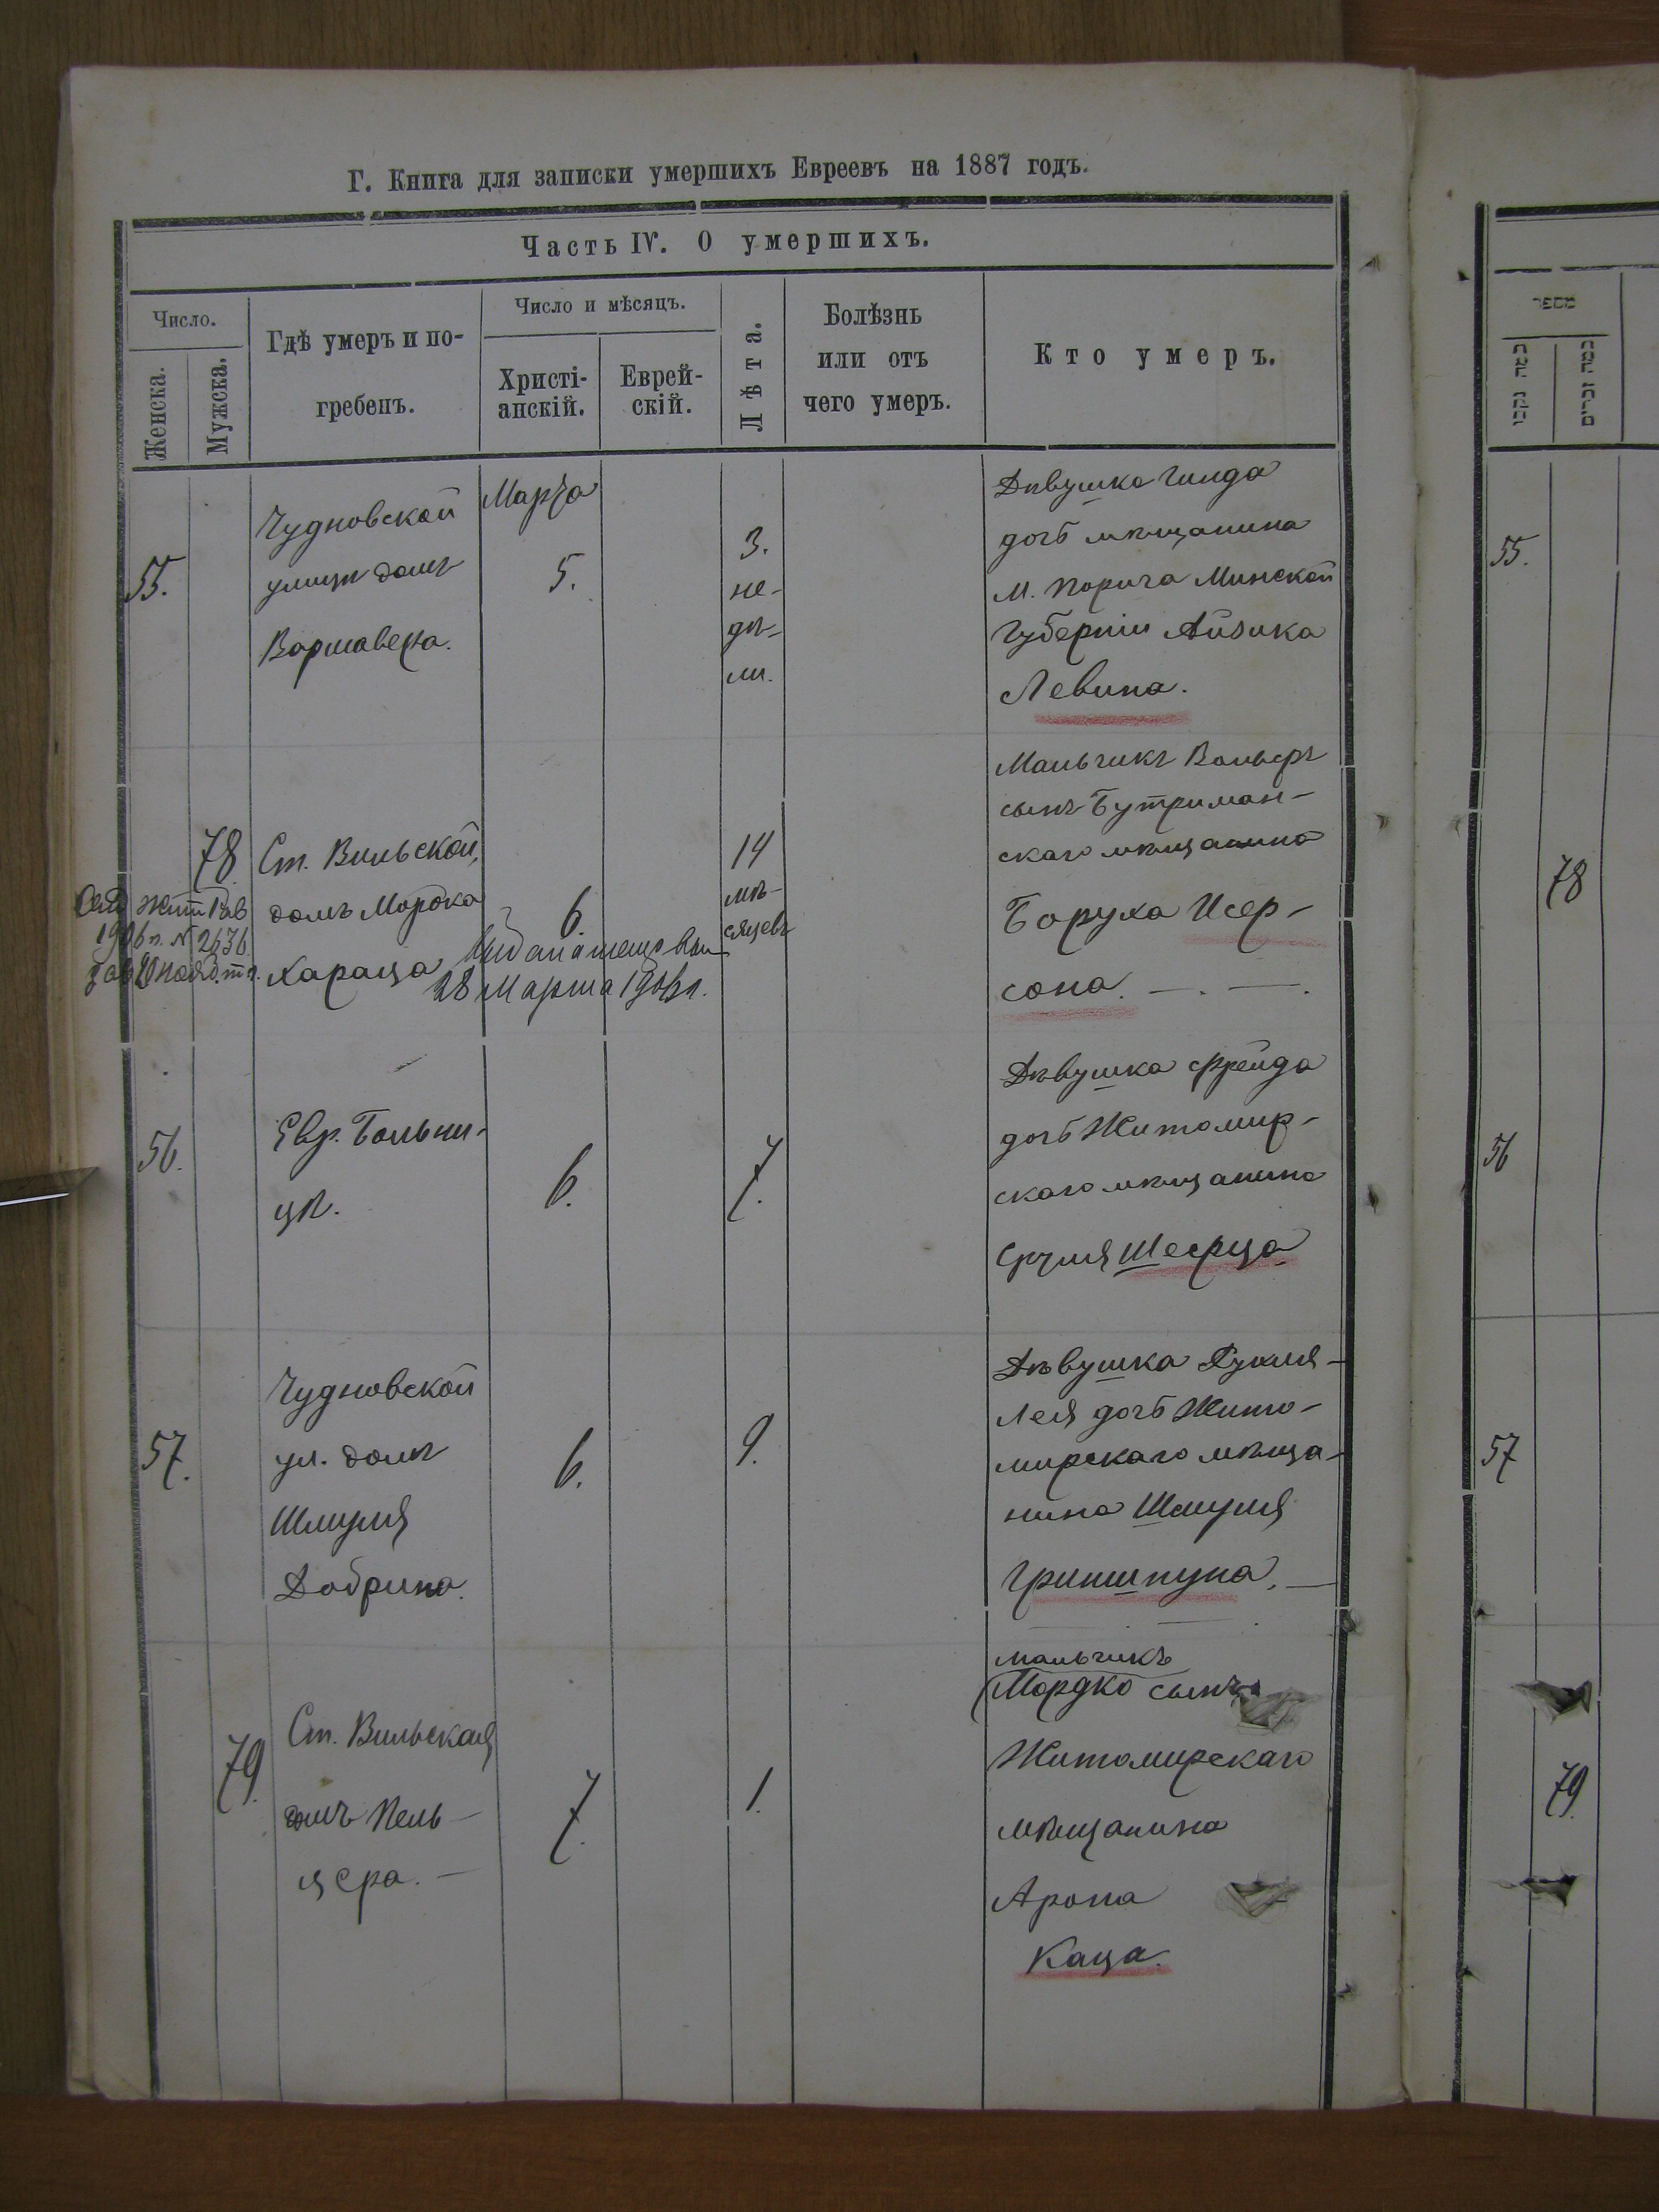 Г. Книга для записки умершихъ Евреевъ на 1887 годъ.
Часть IV. О умершихъ.
Число.
Женска.
Мужска.
Гдѣ умеръ и по-
гребенъ.
Число и мѣсяцъ.
Христі-
анскій.
Еврей-
скій.
Лѣта.
Болѣзнь
или отъ
чего умеръ.
Кто умеръ.
55.
Чудновской
улицѣ домъ
Варшавера.
Марта
5.
3.
не-
дѣ-
ли.
Дѣвушка Гинда
дочь мѣщанина
М. Порича Минской
Губерніи Айзика
Левина.
78
Ст. Вильской,
домъ Мордка
Хараца
6.
14
мѣ-
сяцевъ
Мальчикъ Вольфъ
сынъ Бутриман-
скаго мѣщанина
Боруха Исер-
сона.
1906 г. № 2636
28 Марта 1906 г.
56.
Евр. Больни-
цѣ.
6.
7.
Дѣвушка Фрейда
дочь Житомир-
скаго мѣщанина
Сруля Шефца
57.
Чудновской
ул. домъ
Шмуля
Добрина.
6.
9.
Дѣвушка
Лея дочь Жито-
мирскаго мѣща-
нина Шмуля
Гриншпуна.
79.
Ст. Вильская
домъ Пель-
цера.
7.
1.
мальчикъ
Мордко сынъ
Житомирскаго
мѣщанина
Арона
Каца.
מספר
כמה נקבו
כמה זכרים
55.
78
56
57
79.